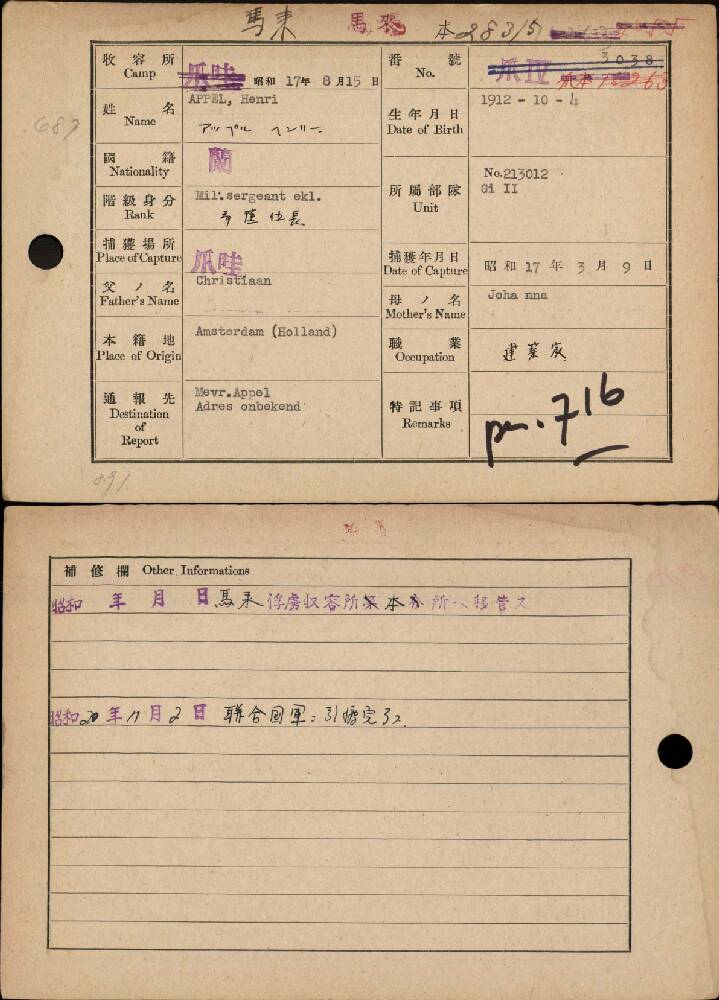 馬来 馬来 本28315
収容所 Camp 爪哇 昭和 17年 8月15日
番號 No. 爪IV 3038
姓名 Name APPEL, Henri
アップル ヘンリー
生年月日 Date of Birth 1912 - 10 - 4
687
國籍 Nationality 蘭
階級身分 Rank Mil. sergeant ekl.
所屬部隊 Unit No.213012
Gi II
捕獲場所 Place of Capture 爪哇
捕獲年月日 Date of Capture 昭和 17 年 3 月 9 日
父ノ名 Father's Name Christiaan
母ノ名 Mother's Name Joha nna
本籍地 Place of Origin Amsterdam (Holland)
職業 Occupation 建築家
通報先 Destination of Report Mevr.Appel
Adres onbekend
特記事項 Remarks
pn. 716
091
補修欄 Other Informations
昭和 年 月 日 馬来俘虜収容所 本 所ヘ移管ス
昭和20年11月2日 聯合国軍ニ引渡完了ス